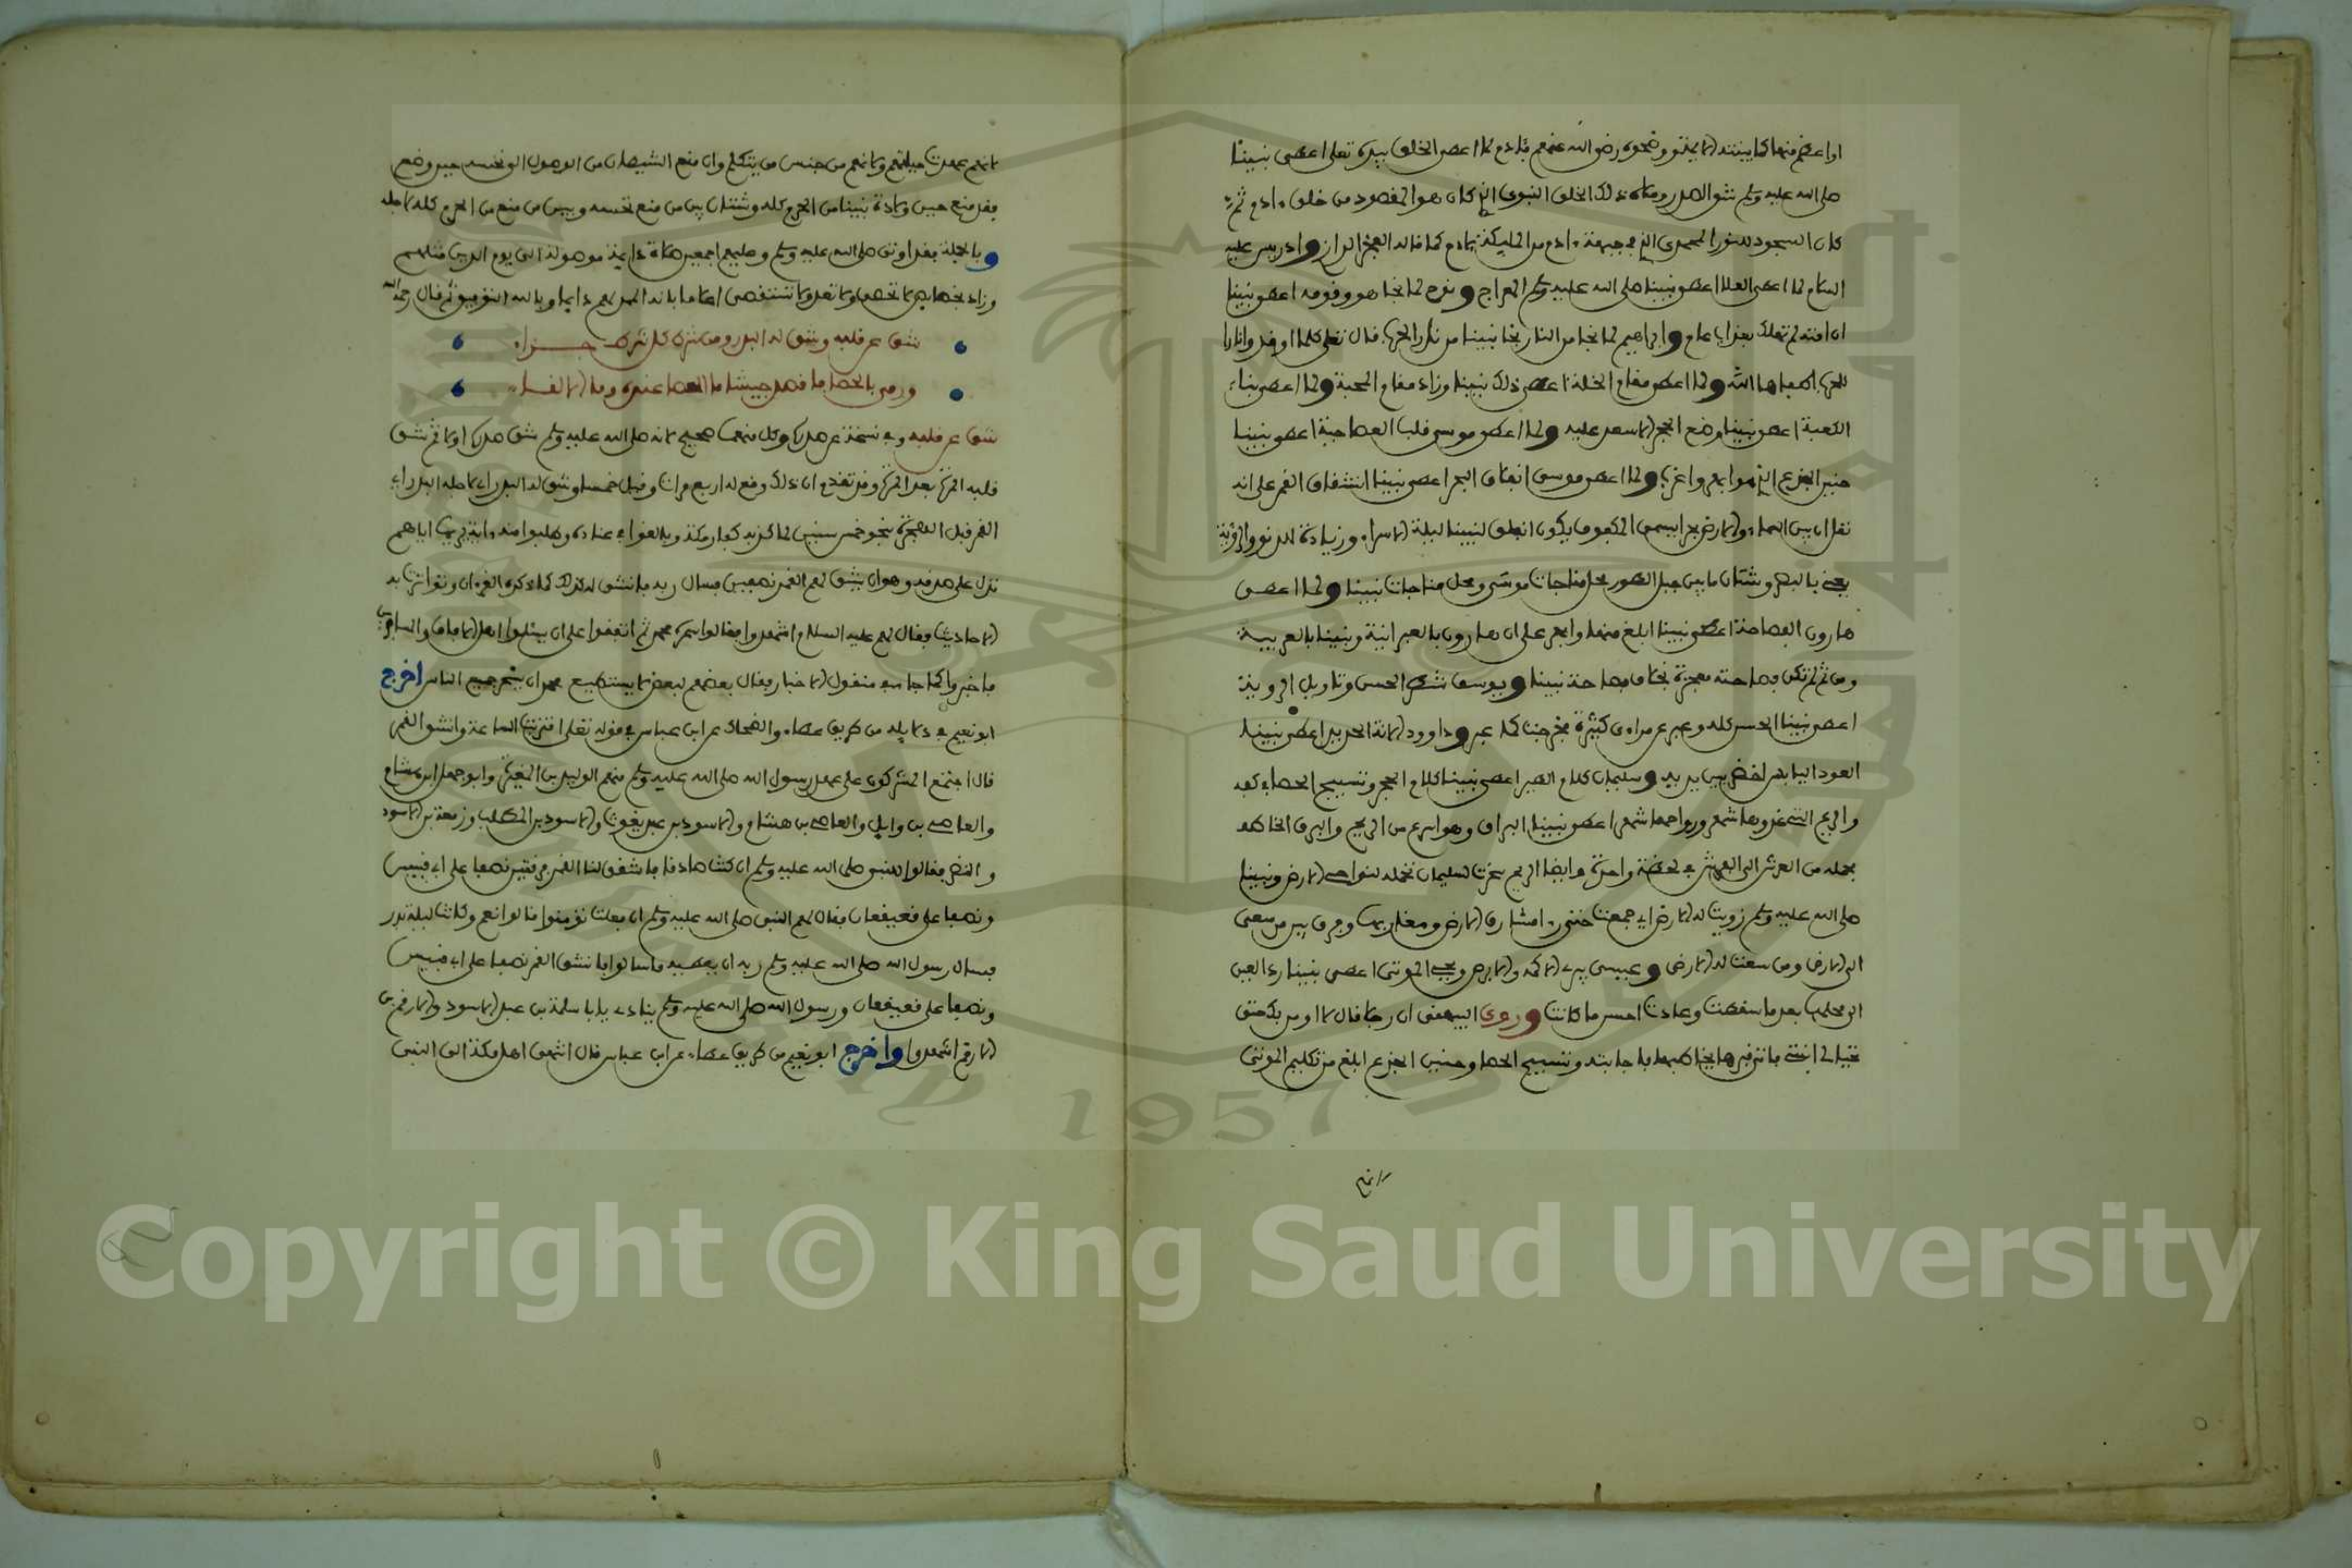 او اعظم منها كما بينته الايمة ونحوه رضى الله عنهم فادم لما اعطى الخلق بيده تعلى اعطى نبينا
صلى الله عليه وسلم شق الصدر وملاه ذلك الخلق النبوى الذى كان هو المقصود من خلق ءادم ثم
كان السجود لنور محمدى الذى فى جبهة ءادم من المليكة لادم كما قاله الفخر الرازى وادريس عليه
السلام لما اعطى العلا اعطى نبينا صلى الله عليه وسلم المعراج ونوح لما نجا هو وقومه اعطى نبينا
ان امته لم تهلك بعذاب عام وابراهيم لما نجا من النار نجا نبينا من نار الحرب قال تعلى كلما اوقدوا نارا
للحرب اطفاها الله ولما اعطى مقام الخلة اعطى ذلك نبينا وزاد مقام المحبة ولما اعطى بناء
الكعبة اعطى نبينا وضع الحجر الاسعد عليه ولما اعطى موسى قلب العصا حية اعطى نبينا
حنين الجذع الذى هو ابهر واغرب ولما اعطى موسى انفلاق البحر اعطى نبينا انشقاق القمر على انه
نقل ان بين السماء والارض بحرا يسمى المكفوف يكون انفلق لنبينا ليلة الاسراء وزيادة الدنو والرؤية
بعين البصر وشتان ما بين جبل الطور محل مناجات موسى ومحل مناجات نبينا ولما اعطى
هارون الفصاحة اعطى نبينا ابلغ منها وابهر على ان هارون بالعبرانية ونبينا بالعربية
ومن ثم لم تكن فصاحته معجزة بخلاف فصاحة نبينا ويوسف شطر الحسن وتاويل الرويا
اعطى نبينا الحسن كله وعبر عن مراءى كثيرة فخرجت كما عبر وداوود الانة الحديد اعطى نبينا
العود اليابس اخضر بين يديه وسليمان كلام الطير اعطى نبينا كلام الحجر وتسبيح الحصا فى كفه
والريح التى غدوها شهر ورواحها شهر اعطى نبينا البراق وهو اسرع من الريح والبرق الخاطف
بحمله من العرش الى الفرش فى لحظة واحدة وايضا الريح سخرت لسليمان تحمله لنواحى الارض ونبينا
صلى الله عليه وسلم زويت له الارض اى جمعت حتى رءا مشارق الارض ومغاربها وفرق بين من سعى
الى الارض ومن سعت له الارض وعيسى ابراء الاكمه والابرص ويحى الموتى اعطى نبينا رد العين
الى محلها بعد ما سقطت وعادت احسن ما كانت وروى البيهقى ان رجلا قال لا اومن بك حتى
تحيى لى ابنتى فاتى قبرها فخاطبها فاجابته وتسبيح الحصا وحنين الجذع ابلغ من تكليم الموتى
لانهم
لانهم عهدت حياتهم ولانهم من جنس من يتكلم وان منع الشيطان من الوصول الى نخسه حين وضع
فقد منع حين ولادة نبينا من الحرم كله وشتان بين من منع نخسه وبين من منع من الحرم كله لاجله
وبالجملة فقد اوتى صلى الله عليه وسلم وعليهم اجمعين صلاة دايمة موصولة الى يوم الدين مثلهم
وزاد بخصايص لا تحصى ولا تعد ولا تستقصى اعلاما بانه الممد لهم دايما وبالله التوفيق ثم قال رحمه الله
شق عن قلبه وشق له البدر ومن شرط كل شرط جزاء
ورمى بالحصا فاقصد جيشا ما العصا عنده وما الالقاء
شق عن قلبه وفى نسخة عن صدره وكل منهما صحيح لانه صلى الله عليه وسلم شق صدره اولا ثم شق
قلبه المرة بعد المرة وقد تقدم ان ذلك وقع له اربع مرات وقيل خمسا وشق له البدر اى لاجله البدر اى
القمر قبل الهجرة بنحو خمس سنين لما كذبه كفار مكة وبالغوا فى عناده وطلبوا منه ءاية يريها اياهم
تدل على صدقه وهو ان يشق لهم القمر نصفين فسال ربه فانشق له لذلك كما ذكره القرءان وتواترت به
الاحاديث فقال لهم عليه السلام اشهدوا فقالوا سحركم محمد ثم اتفقوا على ان يسئلوا اهل الافاق والمسافرين
فاخبروا كما جاء فى منقول الاخبار فقال بعضهم لبعض لا يستطيع محمد ان يسحر جميع الناس اخرج
ابو نعيم فى دلايله من طريق عطاء والضحاك عن ابن عباس فى قوله تعلى اقتربت الساعة وانشق القمر
قال اجتمع المشركون على عهد رسول الله صلى الله عليه وسلم منهم الوليد بن المغيرة وابو جهل ابن هشام
والعاصى بن وايل والعاصى بن هشام والاسود بن عبد يغوث والاسود بن المطلب وزمعة بن الاسود
والنضر فقالوا للنبى صلى الله عليه وسلم ان كنت صادقا فاشقق لنا القمر فرقتين نصفا على ابى قبيس
ونصفا على قعيقعان فقال لهم النبى صلى الله عليه وسلم ان فعلت تومنوا قالوا نعم وكانت ليلة بدر
فسال رسول الله صلى الله عليه وسلم ربه ان يعطيه ما سالوا فانشق القمر نصفا على ابى قبيس
ونصفا على قعيقعان ورسول الله صلى الله عليه وسلم ينادى يابا سلمة بن عبد الاسد والارقم بن
الارقم اشهدوا واخرج ابو نعيم من طريق عطاء عن ابن عباس قال انتهى اهل مكة الى النبى
Copyright © King Saud University
1957